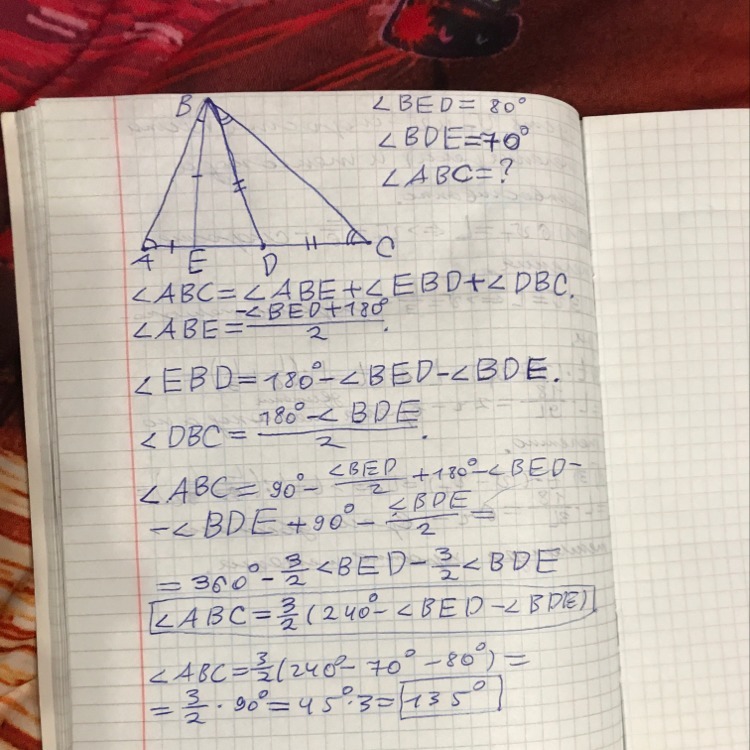 B
∠BED = 80°
∠BDE=70°
∠ABC=?
A E D C
∠ABC=∠ABE+∠EBD+∠DBC.
∠ABE=(-∠BED+180°)/2.
∠EBD=180°-∠BED-∠BDE.
∠DBC=(180°-∠BDE)/2.
∠ABC=90°-∠BED/2+180°-∠BED-
-∠BDE+90°-∠BDE/2=
=360°-3/2∠BED-3/2∠BDE
∠ABC=3/2(240°-∠BED-∠BDE)
∠ABC=3/2(240°-70°-80°)=
=3/2·90°=45°·3=135°